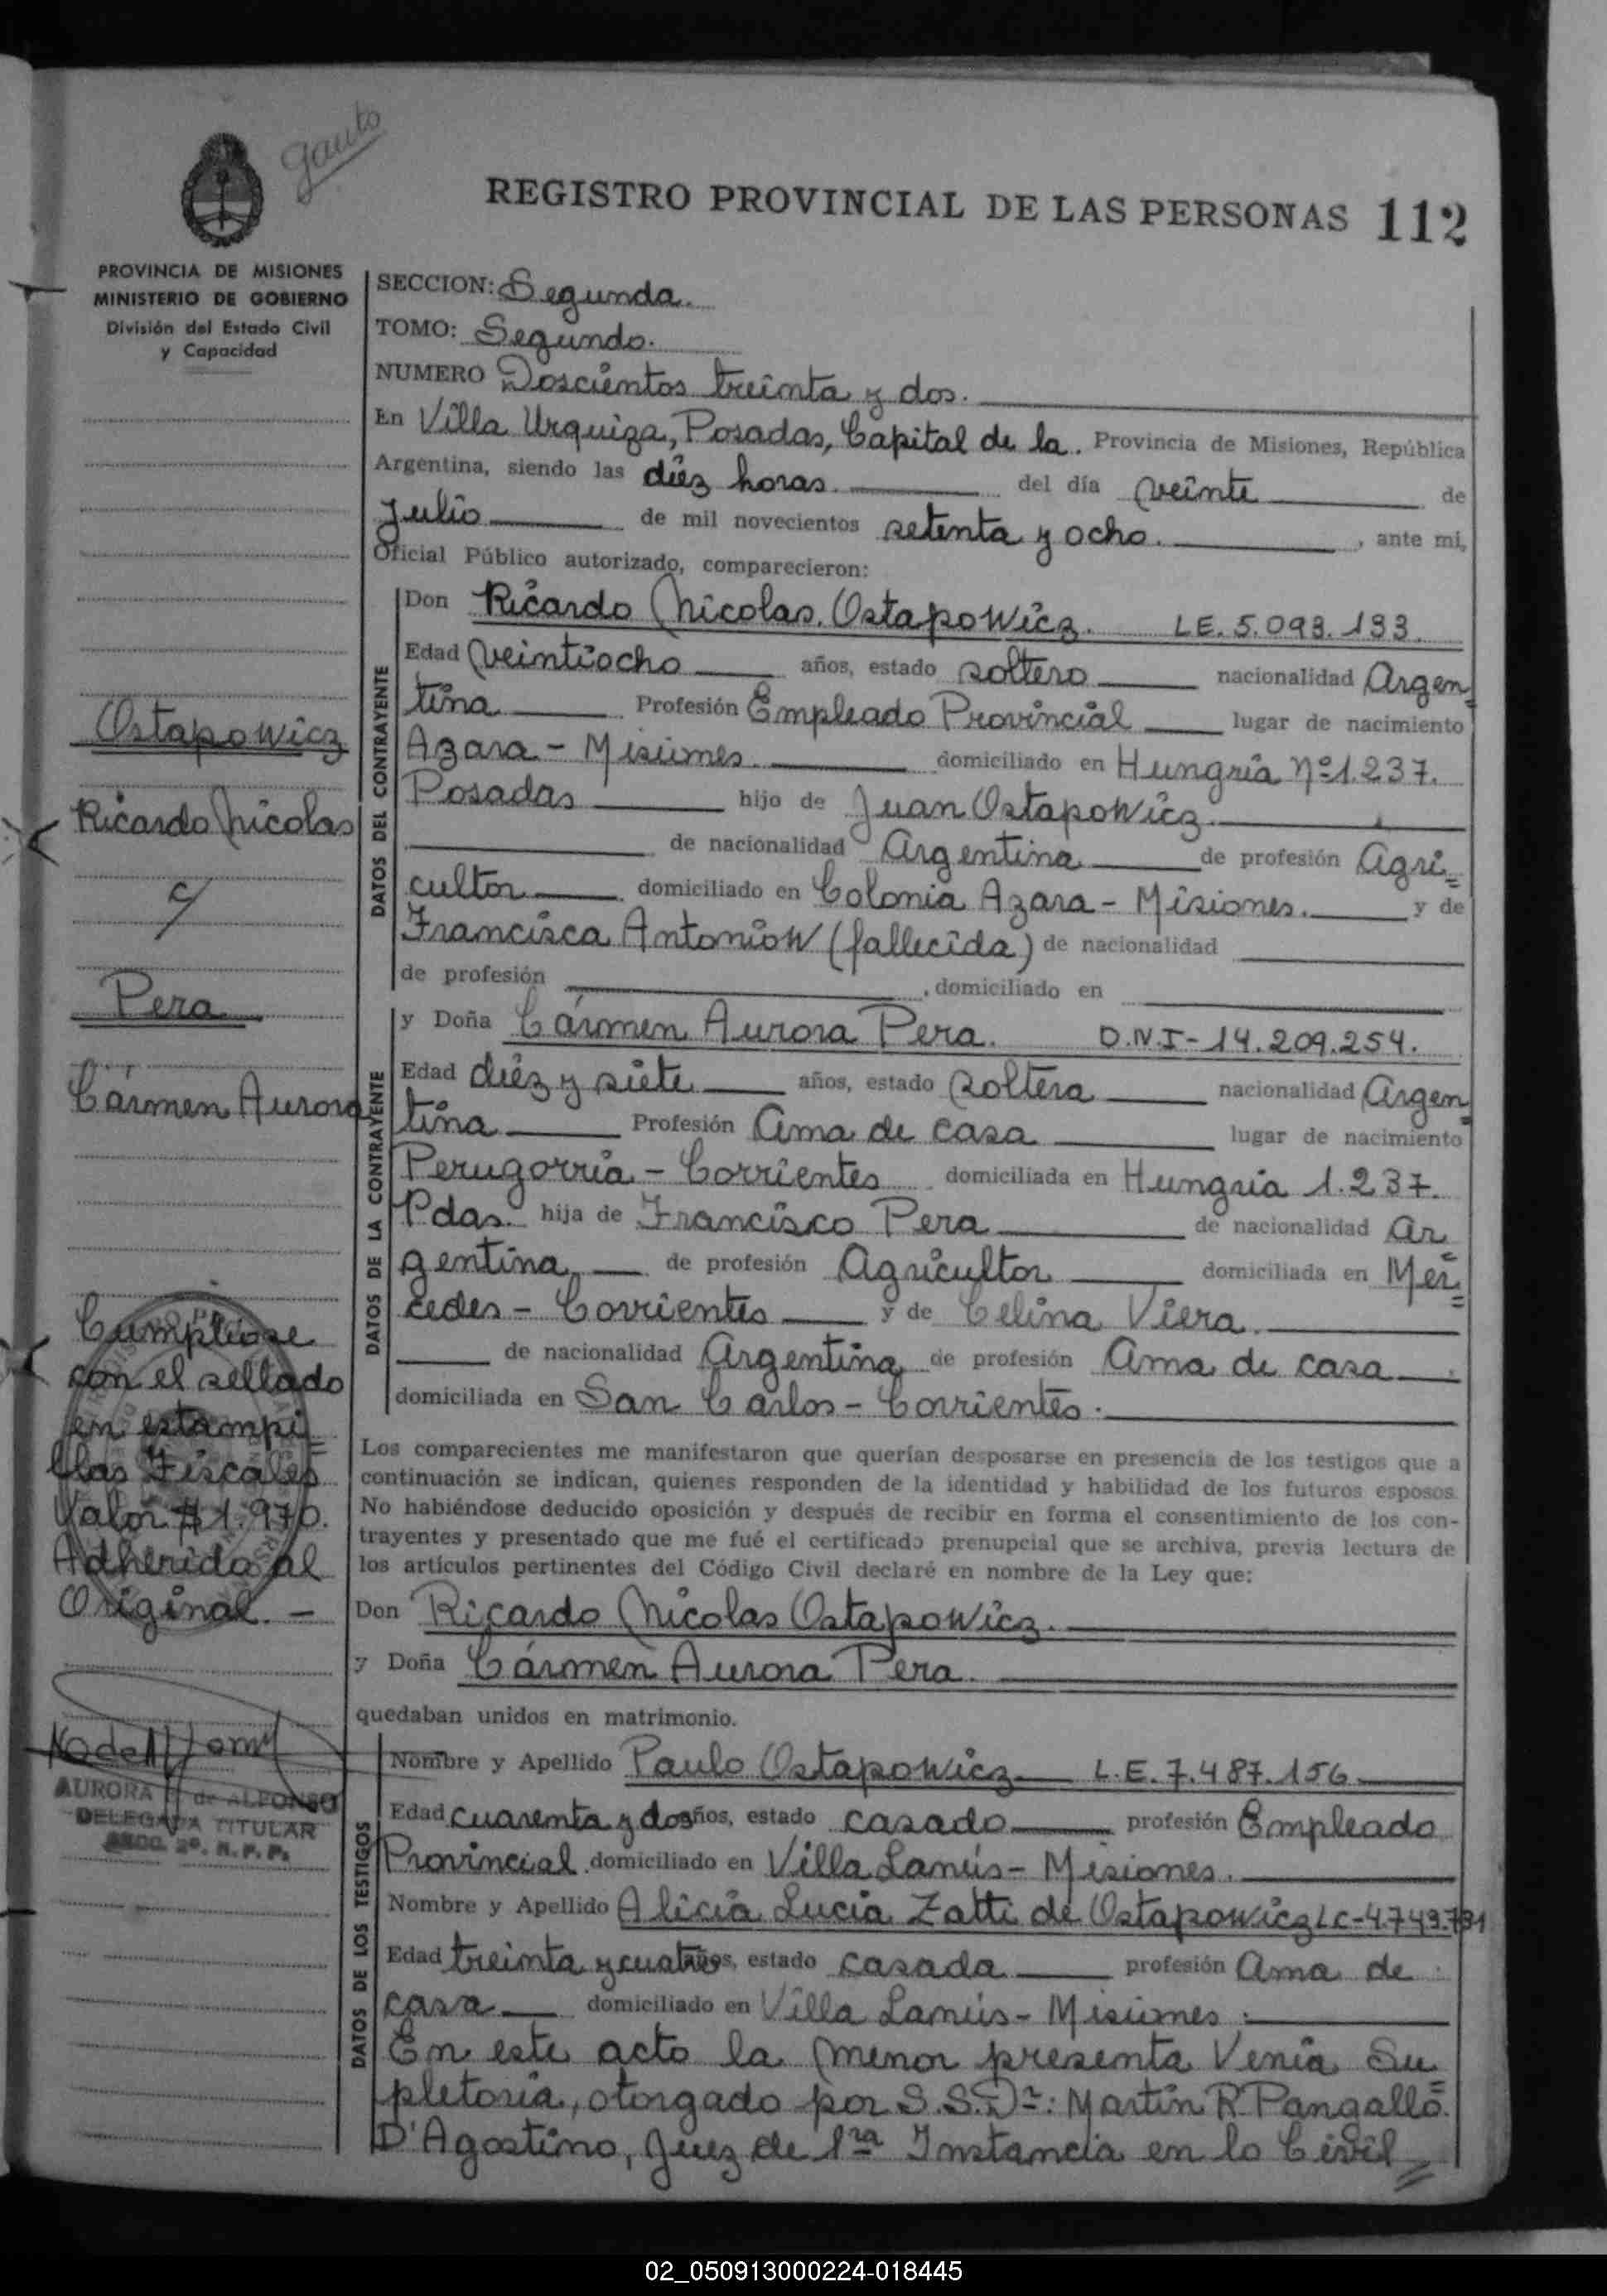 gauto
REGISTRO PROVINCIAL DE LAS PERSONAS 112
PROVINCIA DE MISIONES
MINISTERIO DE GOBIERNO
División del Estado Civil
y Capacidad
Ostapowicz
Ricardo Nicolas
c/
Pera
Cármen Aurora
Cumpliose
con el sellado
en estampi=
llas Fiscales
Valor $1.970.
Adherida al
Original. -
AURORA de ALFONSO
DELEGADA TITULAR
SECC. 2º. R. P. P.
SECCION: Segunda.
TOMO: Segundo.
NUMERO Doscientos treinta y dos.
En Villa Urquiza, Posadas, Capital de la. Provincia de Misiones, República
Argentina, siendo las diéz horas. del día veinte de
Julio de mil novecientos setenta y ocho. , ante mi,
Oficial Público autorizado, comparecieron:
DATOS DEL CONTRAYENTE
Don Ricardo Nicolas Ostapowicz. LE. 5.093.133.
Edad veintiocho años, estado soltero nacionalidad Argen=
tina Profesión Empleado Provincial lugar de nacimiento
Azara - Misiones. domiciliado en Hungria Nº 1.237.
Posadas hijo de Juan Ostapowicz.
de nacionalidad Argentina de profesión Agri=
cultor domiciliado en Colonia Azara - Misiones. y de
Francisca Antoniow (fallecida) de nacionalidad
de profesión , domiciliado en
DATOS DE LA CONTRAYENTE
y Doña Cármen Aurora Pera. D.N.I - 14.209.254.
Edad diéz y siete años, estado soltera nacionalidad Argen=
tina Profesión Ama de casa lugar de nacimiento
Perugorria - Corrientes domiciliada en Hungria 1.237.
Pdas. hija de Francisco Pera de nacionalidad Ar=
gentina de profesión Agricultor domiciliada en Mer=
cedes - Corrientes y de Celina Viera.
de nacionalidad Argentina de profesión Ama de casa
domiciliada en San Carlos - Corrientes.
Los comparecientes me manifestaron que querían desposarse en presencia de los testigos que a
continuación se indican, quienes responden de la identidad y habilidad de los futuros esposos.
No habiéndose deducido oposición y después de recibir en forma el consentimiento de los con-
trayentes y presentado que me fué el certificado prenupcial que se archiva, previa lectura de
los artículos pertinentes del Código Civil declaré en nombre de la Ley que:
Don Ricardo Nicolas Ostapowicz.
y Doña Cármen Aurora Pera.
quedaban unidos en matrimonio.
DATOS DE LOS TESTIGOS
Nombre y Apellido Paulo Ostapowicz L.E. 7.487.156
Edad cuarenta y dos años, estado casado profesión Empleado
Provincial domiciliado en Villa Lanús - Misiones.
Nombre y Apellido Alicia Lucia Zatti de Ostapowicz LC-4.749.731
Edad treinta y cuatro años, estado casada profesión Ama de
casa domiciliado en Villa Lanús - Misiones.
En este acto la menor presenta Venia Su=
pletoria, otorgado por S.S. Dr: Martin R. Pangallo
D'Agostino, Juez de 1ra Instancia en lo Civil
02_050913000224-018445